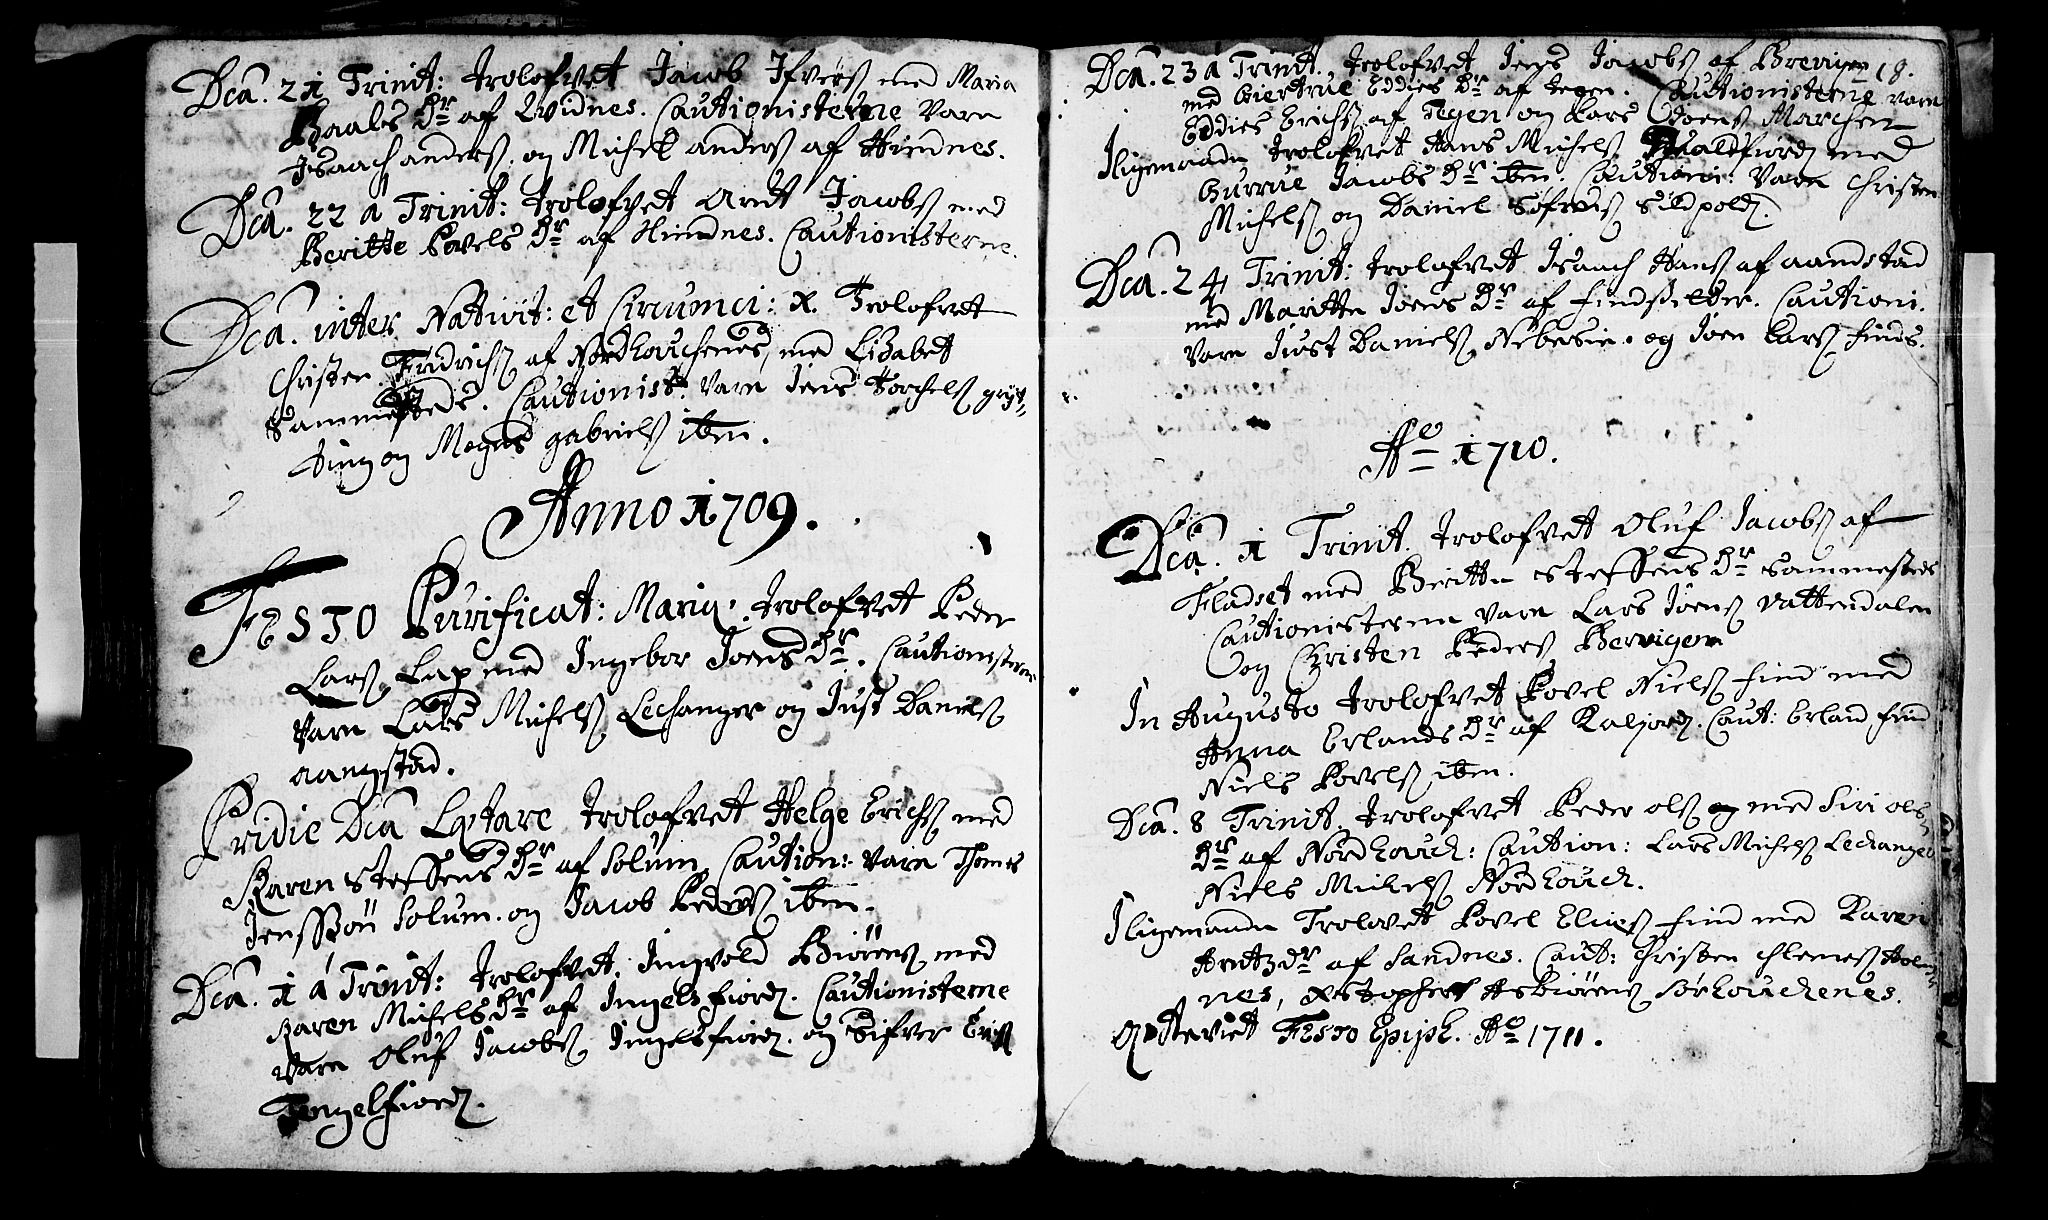 Dca. 21 Trinit: trolofvet Jacob Ifvers med Maria
Baals Dr af Qvidnes. Cautionisterne varn
Isaach anders. og Michel anders af Hindnes.
Dca. 22 á Trinit: trolofvet Arnt Jacobs med
Beritte Povels Dr af Hindnes. Cautionisterne.
Dca. inter Nativit: et Circumci: X. Trolofvet
Christen Fridrichs af Nordhouchenes, med Lisabet
sammesteds. Cautionist: varn Jens Torchels gryt-
ting og Mogns gabriels ibm.
Anno 1709.
FESTO Purificat: Mariæ: trolofvet Peder
Lars Lap med Ingebor Joens Dr. Cautionisterne
varn Lars Michels Lechanger og Just Daniels
aangstad.
Pridie Dca Lætare trolofvet Helge Erichs med
Karen steffens Dr af Solum Caution: varn Thomes
Jenssøn Solum. og Jacob Peders ibm.
Dca. 1 á Trinit: trolofvet. Ingvold Biørens med
Karen Michels Dr af Ingelsfiord. Cautionisterne
varn Oluf Jacobs Ingelsfiord. og Sifver Erichs
Ingelsfiord.
Dca. 23 á Trinit. trolofvet Jens Jacobs af Brevigen 18.
med Giertrue Eddies Dr af tegen. Cautionisterne varn
Eddies Erichs af Tegen og Lars Joens Marchen
Iligemaade trolofvet Hans Michels Hualdfiord med
Gurrue Jacobs Dr ibm. Cautioni: varn Christen
Michels og Daniel Søfrens Sildpold.
Dca. 24 Trinit: trolofvet Isaach Hans af aandstad
med Maritte Joens Dr af findsetter. Cautioni.
varn Just Daniels Nibesie. og Joen Lars finds.
Ao 1710.
Dca. 1 Trinit. trolofvet Oluf Jacobs af
Fladset med Beritte steffens Dr sammesteds
Cautionisterne varn Lars Joens Vattendalen
og Christen Peders Bervigen
In Augusto trolofvet Povel Niels find med
Anna Erlands Dr af Kaljord. Caut: Erland find
Niels Povels ibm.
Dca. 8 Trinit. trolofvet Peder ols og med Siri ols
Dr af Nordhouch: Caution: Lars Michels Lechanger
Niels Michels Nordhouch.
Iligemaade Trolovet Povel Elies find med Karen
Arntz dr af Sandnes. Caut: Christen Clemes Holm-
nes, Xstopher Asbiørens Sørhouchenes.
Copuleret Festo Epiph. Ao 1711.